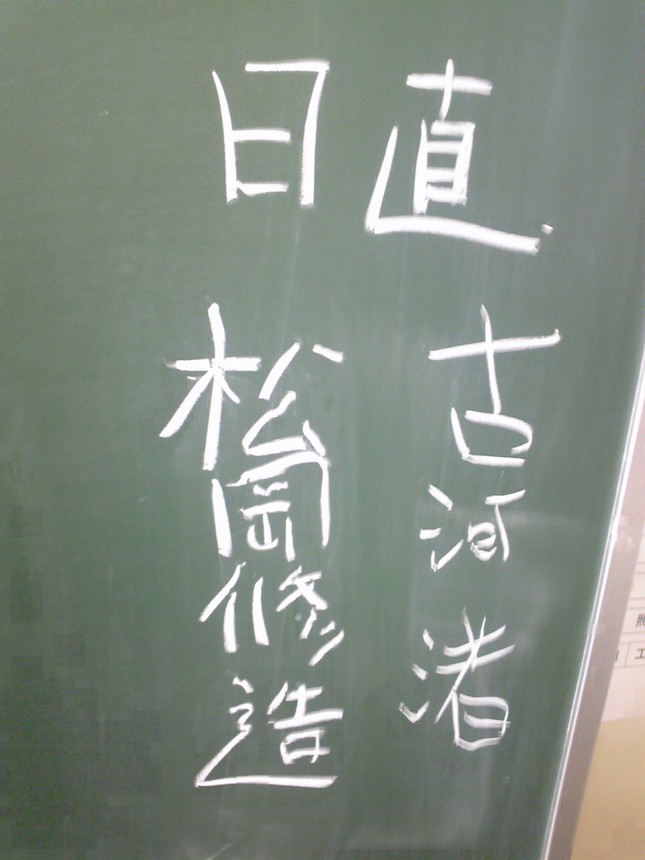 日直
古河渚
松岡修造